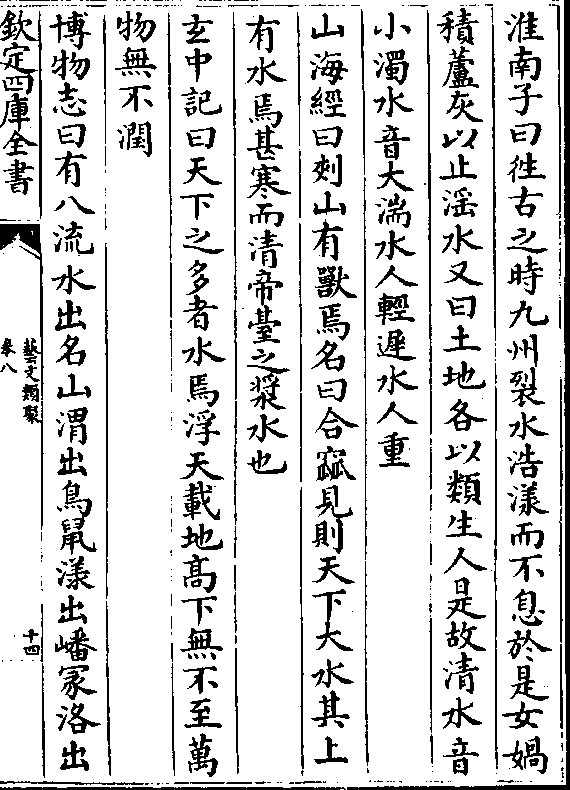 淮南子曰徃古之時九州裂水浩漾而不息於是女媧
積蘆灰以止滛水又曰土地各以類生人是故清水音
小濁水音大湍水人輕遲水人重
山海經曰剡山有獸焉名曰合窳見則天下大水其上
有水焉甚寒而清帝臺之漿水也
玄中記曰天下之多者水焉浮天載地髙下無不至萬
物無不潤
博物志曰有八流水出名山渭出鳥鼠漾出嶓冢洛出
欽定四庫全書
藝文類聚
卷八
十四